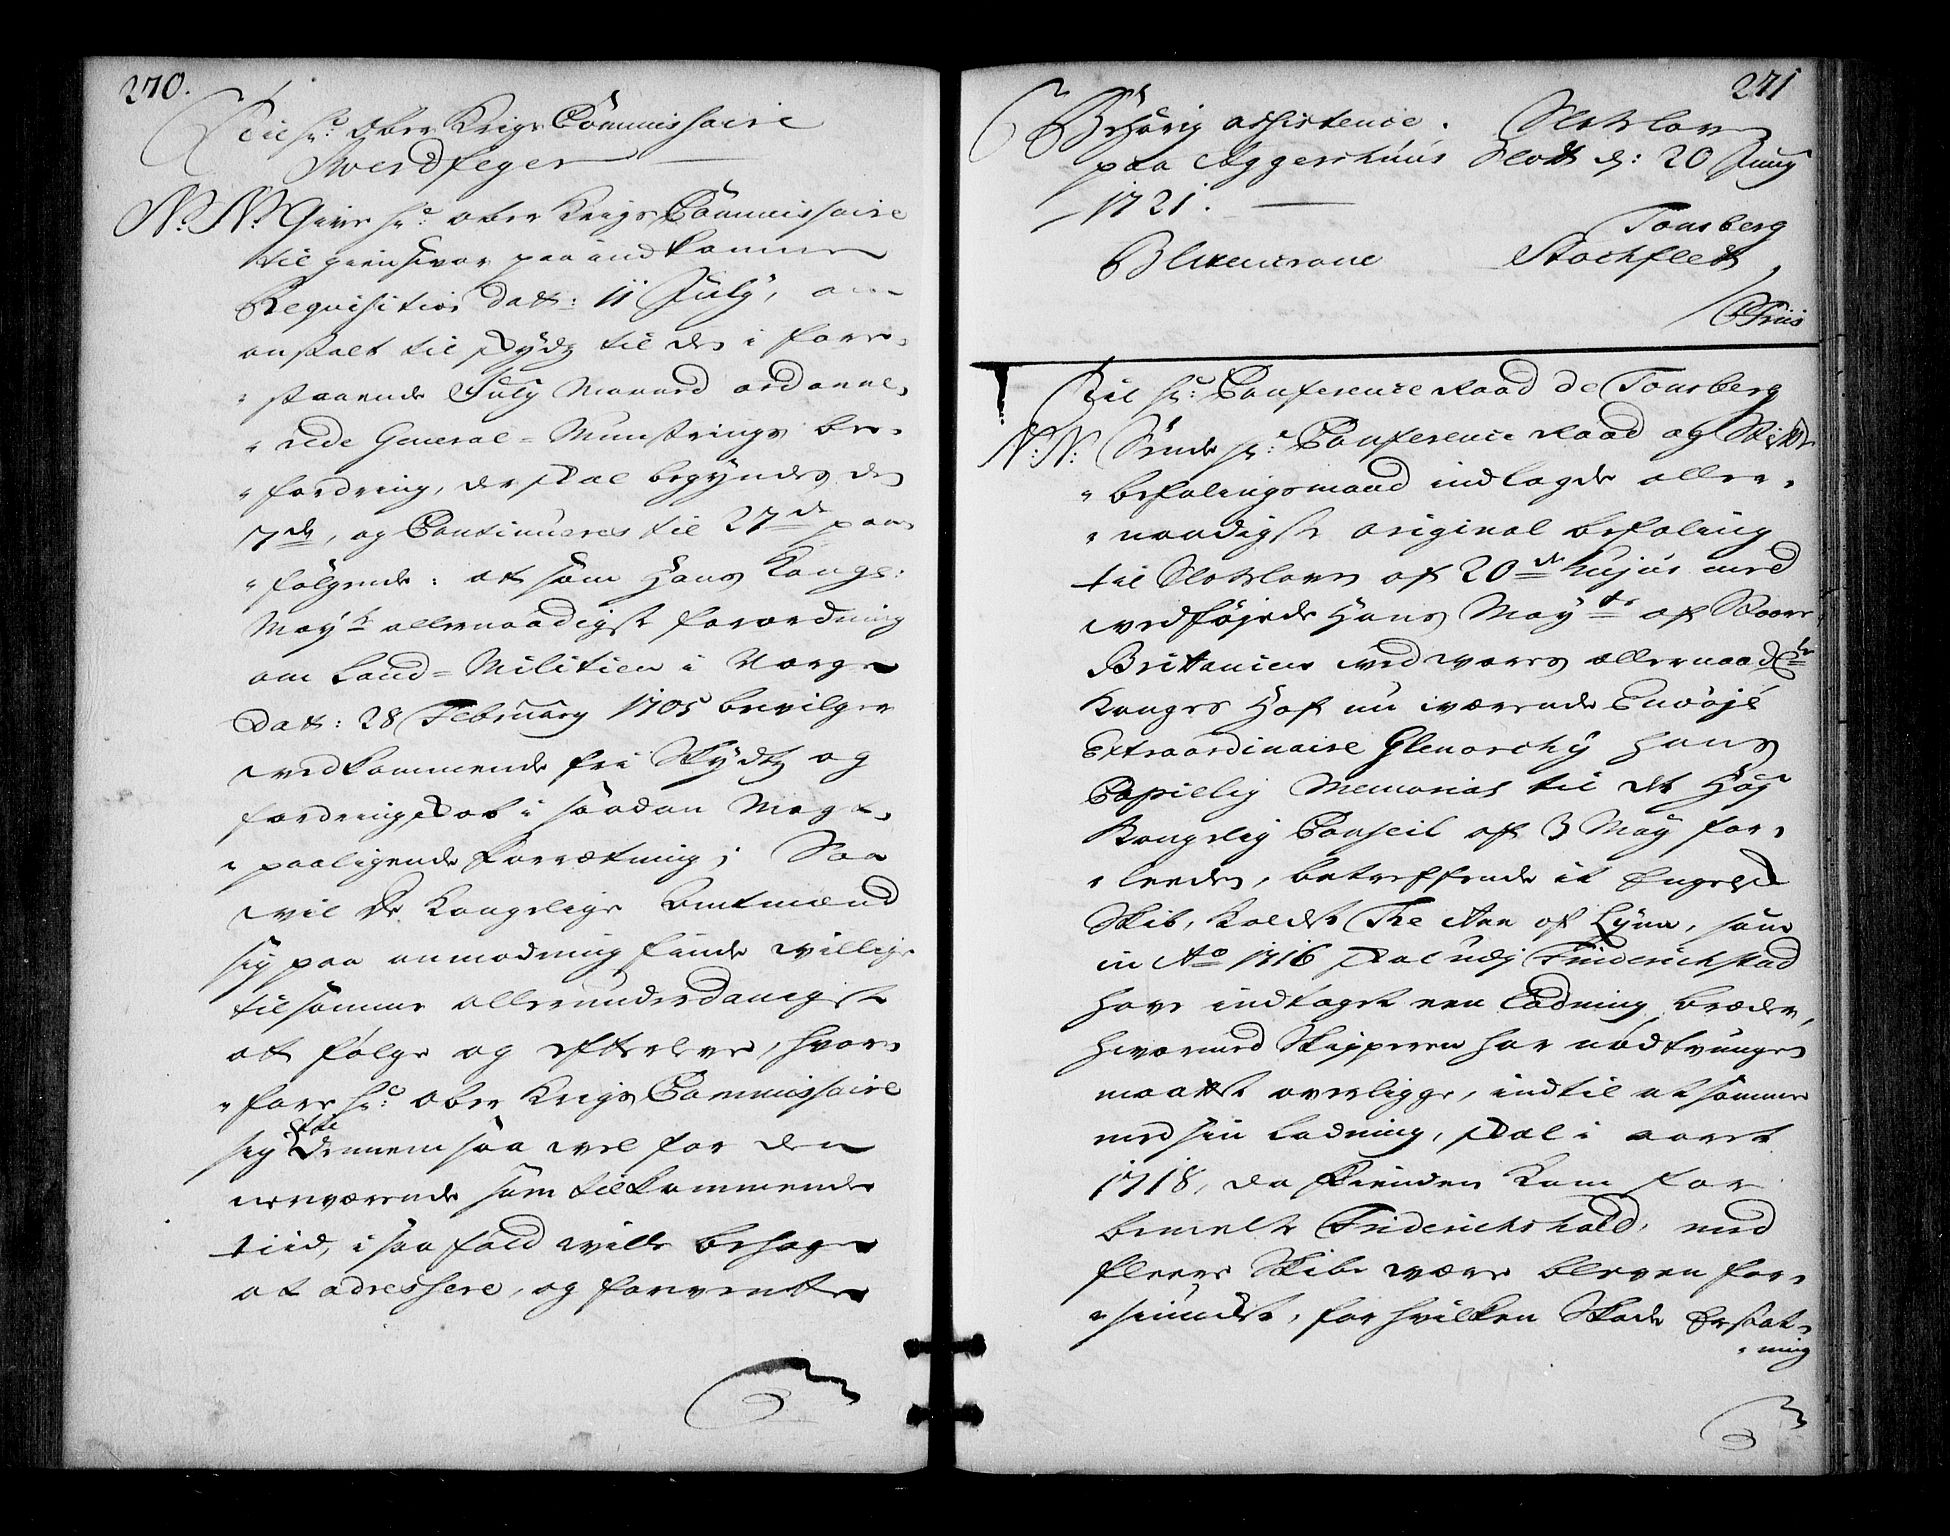 270.
Til hr: Ober Krigs Commissaire
Swerdfeger
N: N: Give hr: ober Krigs Commissaire
til giensvar paa ind komne
Requisition Dat: 11 July, om
anstalt til skydz til den i fore,
"staaende July Maaned ordonne,
"rede General-Munstrings be,
"fordring, der skal begyndes den
7de, og Continueres til 27de paa
"følgende: at som Hans Konge:
Mayts allernaadigste forordning
om Land-Militien i Norge
Dat: 28 February 1705 bevilger
vedkommende fri Skydtz og
fordringskab i saadan Mag a,
"paaligende forrætning; Saa
vil De Kongelige Amtmænd
sig paa anmodning finde villige
til samme allerunderdanigst
at følge og efterleve, hvor,
"fore hr: ober Krigs Commissaire
sig til Dennem saa vel for den
nerværende som tilkommende
tiid, i saa fald ville behage
at adressere, og forvente
271
Behørig assistence. Slotsloven
paa Aggershuus Slott d: 20 Juny
1721.
Tonsberg
Blixencrone Stochflett
/ CFriis
Til hr: Conference Raad de Tonsberg
N: N: Sende hr: Conference Raad og Stift
"befalingsmand indlagde aller,
"naadigste original befaling
til Slotsloven af 20de hujus med
vedføjede Hans Mayts af Stoore
Britanien ved vores allernaadste
Konges Hof nu værende Envòjé
Extraordinaire Glenorchy hans
Copielig Memorial til det Høj
Kongelig Conseil af 3 May for,
"leeden, betreffende it Engelsk
Skib, kaldet The Ann of Lynn, som
in Ao 1716 skal udj Friderichstad
have indtaget een Ladning bræder,
hvormed Skipperen har nødtvungen
maattet overligge, indtil at samme
med sin Ladning, skal i aaret
1718, da fienden kom for
bemelte Friderichshald, med
fleere Skibe være bleven for,
"siuncket, for hvilken Skade Erstat,
"ning